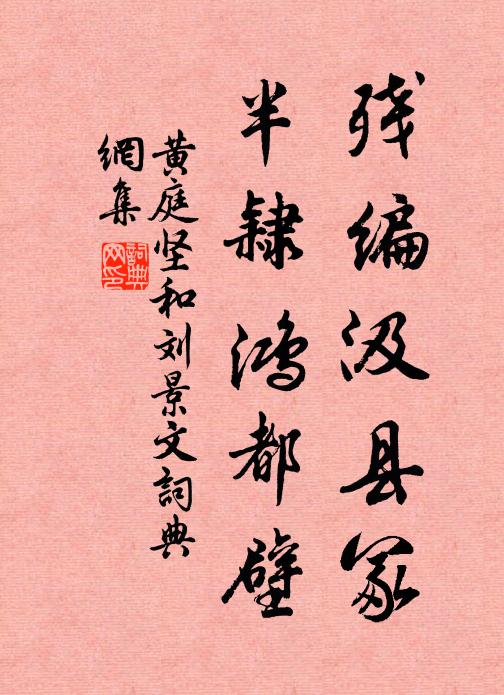 残编汲县冢
半隸鸿都壁
黄庭坚和刘景文詞典
網集
詞典
网印